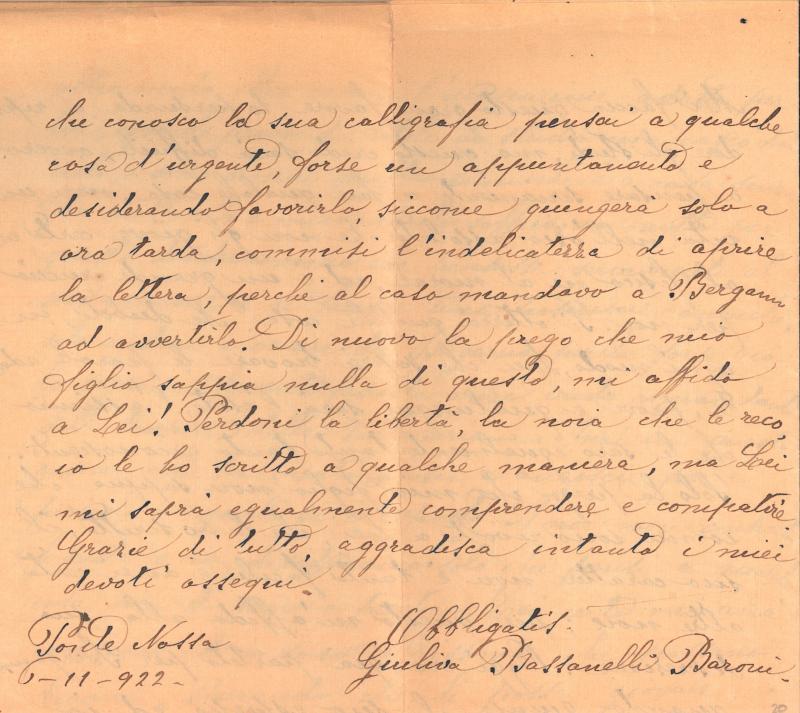 che conosco la sua calligrafia pensai a qualche
cosa d'urgente, forse un appuntamento e
desiderando favorirlo, siccome giungerà solo a
ora tarda, commisi l'indelicatezza di aprire
la lettera, perchè al caso mandavo a Bergamo
ad avvertirlo. Di nuovo la prego che mio
figlio sappia nulla di questo, mi affido
a Lei! Perdoni la libertà, la noia che le reco,
io le ho scritto a qualche maniera, ma Lei
mi saprà egualmente comprendere e compatire
Grazie di tutto, aggradisca intanto i miei
devoti ossequi
Obbligatis.
Ponte Nossa
Giuliva Bassanelli Baroni.
-11-922-